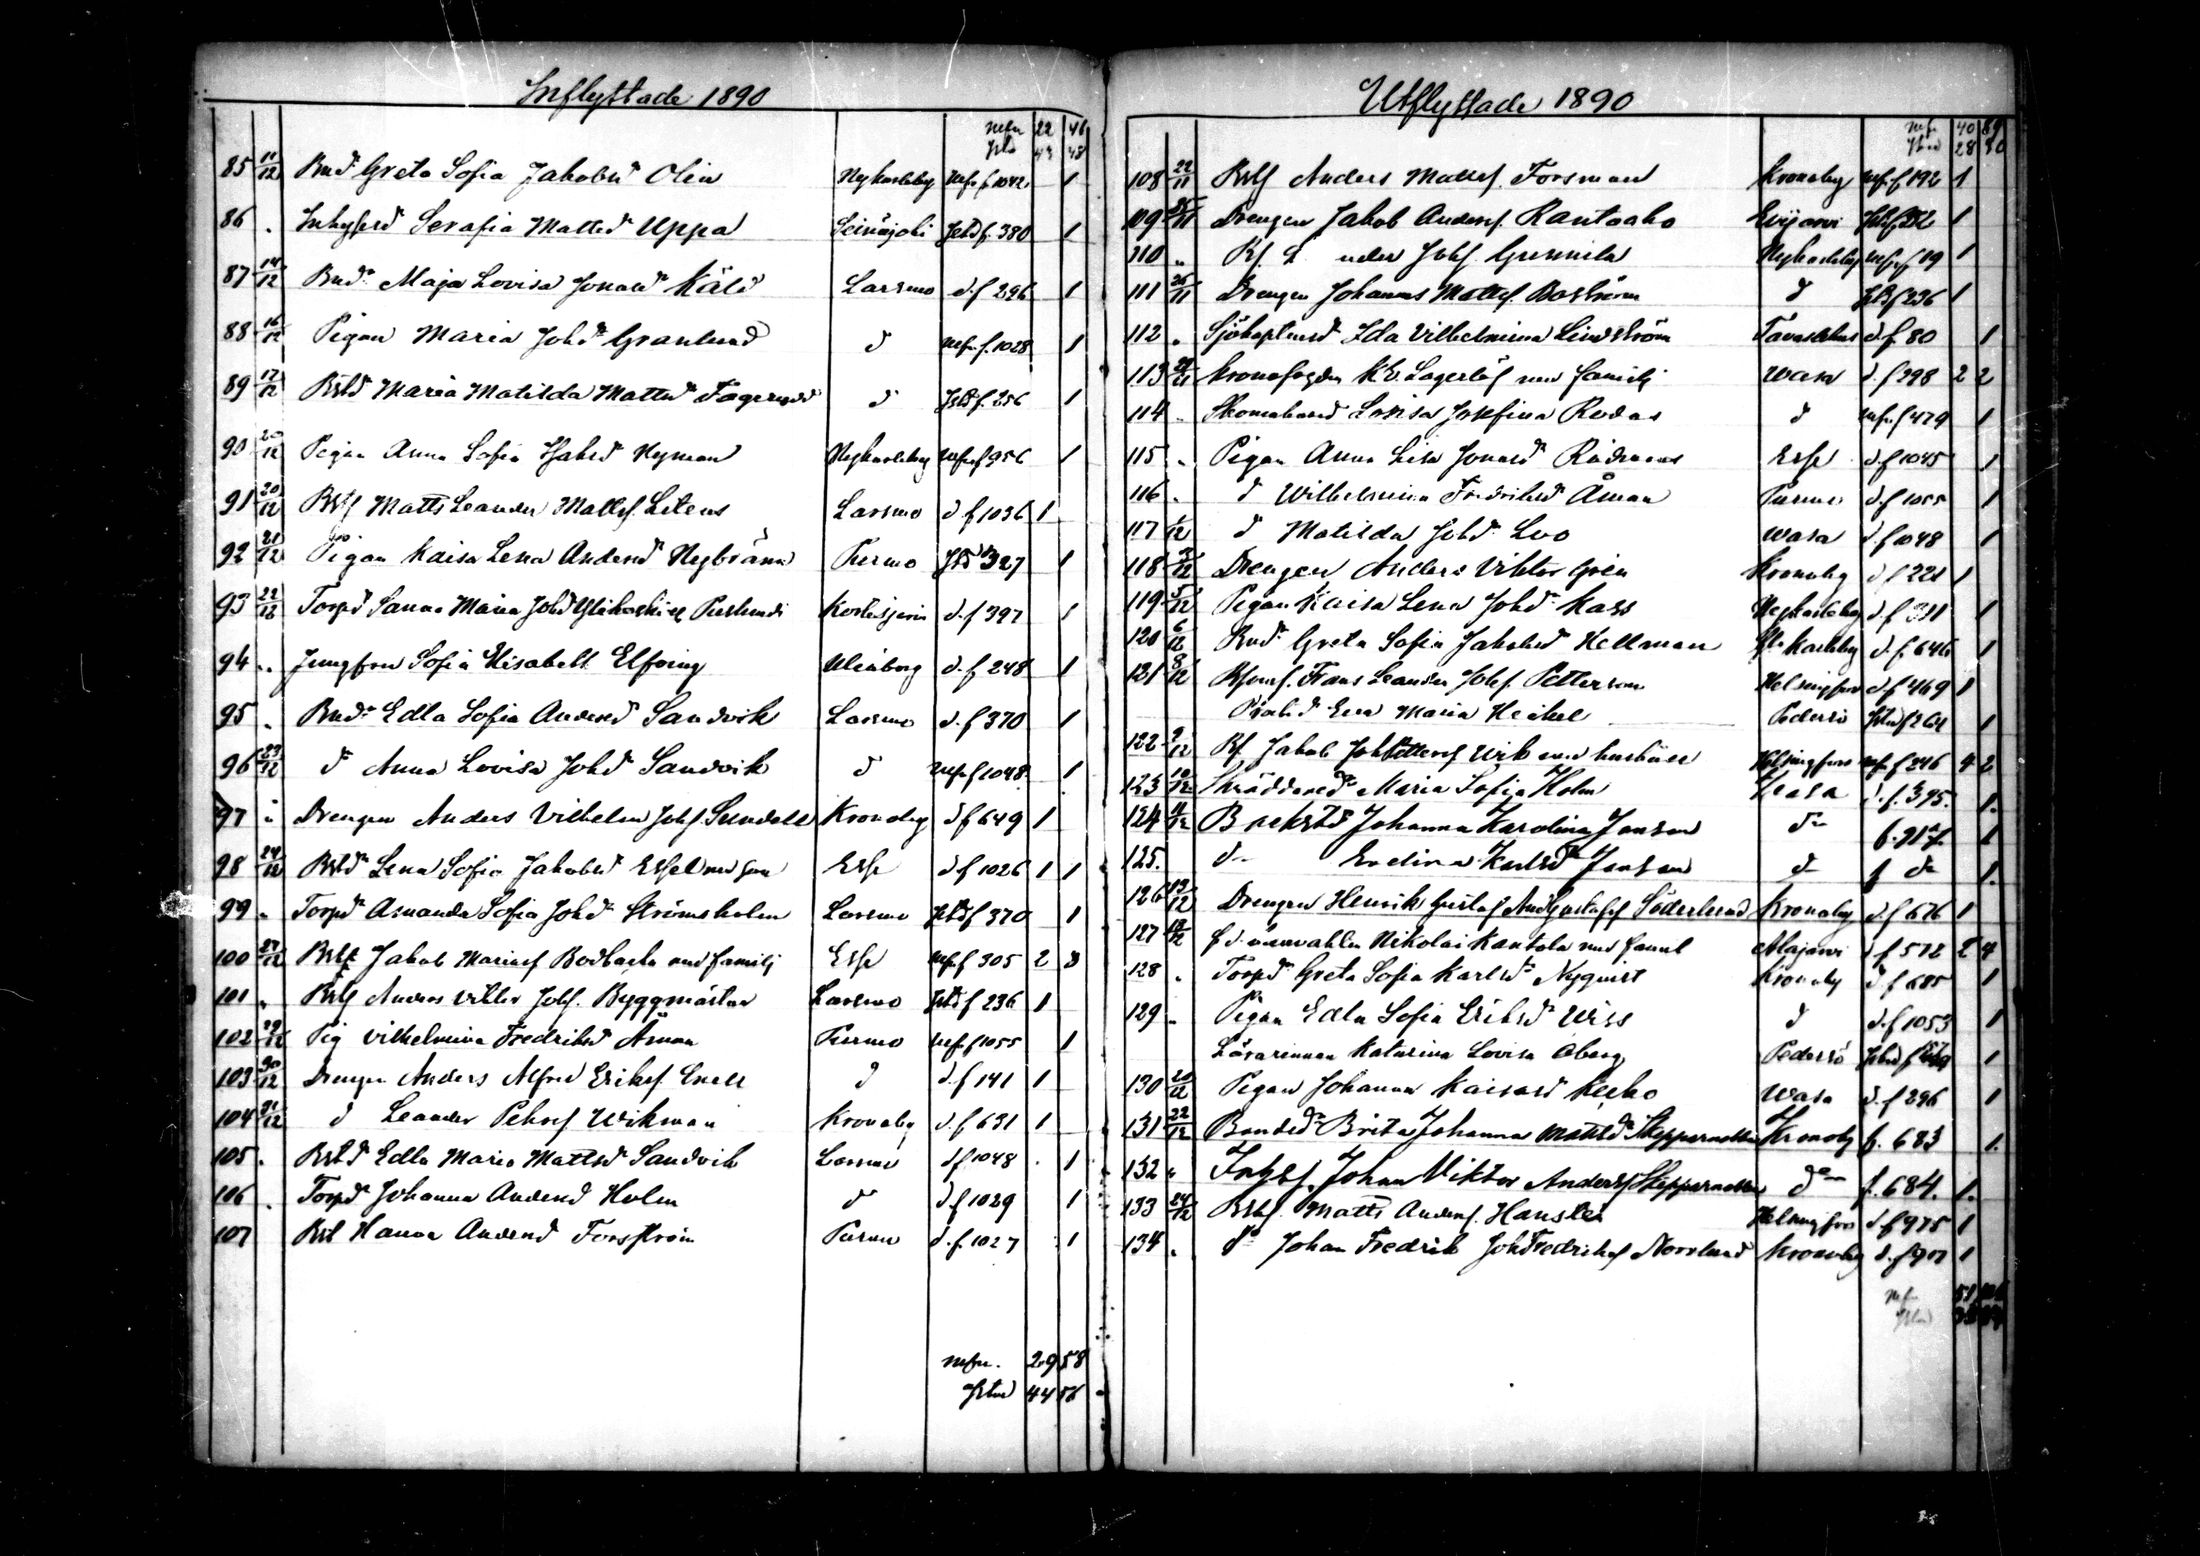 Inflyttade 1890
nfn 22 46
Jstd 43 48
85 11/12 Bnd Greta Sofia Jakobsd Olin Nykarleby nfn f 1042 1
86 " Inhysesd Serafia Mattsd Uppa Seinäjoki Jstd f. 380 1
87 14/12 Bnd Maja Lovisa Jonasd Käld Larsmo d. f 296 1
88 16/12 Pigan Maria Johd Granlund d nfn f. 1028 1
89 17/12 Bstd Maria Matilda Mattsd d Jstd f. 256 1
90 20/12 Pigan Anna Sofia Nyman Nykarleby nfn f 956 1
91 20/12 Bstf Matts Leander Mattsf. Litens Larsmo d f 1036 1
92 21/12 Pigan Kaisa Lena Andersd Nybränn Purmo Jstd 327 1
93 22/12 Torpd Sanna Maria Johd Kortesjärvi d. f 397 1
94 " Jungfrun Sofia Elisabett Elfving Uleåborg d. f 248 1
95 " Bnd Edla Sofia Andersd Sandvik Larsmo d. f 370 1
96 23/12 d Anna Lovisa Johd Sandvik d nfn f 1048 1
97 " Drengen Anders Vilhelm Johsf. Sundell Kronoby d f 649 1
98 24/12 Bstd Lena Sofia Jakobsd med son Esse d f 1026 1 1
99 " Torpd Amanda Sofia Johd Strömsholm Larsmo Jstd f 370 1
100 27/12 Bstf Jakob Mariasf Bodbacka med familj Esse nfn f 305 2 3
101 " Bstf Anders Viktor Johsf. Byggmästar Larsmo Jstd f 236 1
102 29/12 Pig Vilhelmina Fredriksd Åman Purmo nfn f 1055 1
103 30/12 Drengen Anders Alfred Eriksf. Enell d d. f 141 1
104 31/12 d Leander Petersf Wikman Kronoby d. f 631 1
105 " Bstd Edla Maria Mattsd Sandvik Larsmo d f 1048 1
106 " Torpd Johanna Andersd Holm d d f 1029 1
107 Bst Hanna Andersd Forsström Purmo d. f. 1027 1
nfn. 29 58
Jstd 44 56
Utflyttade 1890
nfn 40 89
Jstd 28 30
108 22/11 Bstf Anders Mattsf. Forsman Kronoby nfn f 192 1
109 Drengen Jakob Andersf. Rantaaho Evijärvi Jstd f 1
110 " Johsf. Grennila Nykarleby nfn f 19 1
111 26/11 Drengen Johannes Mattsf. Boström d Jstd f 236 1
112 " Sjökaptensd Ida Vilhelmina Lindström Tavastehus d f 80 1
113 Kronofogden K. E. Lagerlöf med familj Wasa d. f 298 2 2
114 " Skomakared Lovisa Josefina Rodas d nfn f 479 1
115 " Pigan Anna Lisa Jonasd Rådmans Esse d. f 1045 1
116 " d Wilhelmina Fredriksd Åman Purmo d. f 1055 1
117 1/12 d Matilda Johd Loo Wasa d f 1048 1
118 Drengen Anders Viktor Grén Kronoby d f 221 1
119 5/12 Pigan Kaisa Lena Johd Kass Nykarleby d. f 311 1
120 6/12 Bnd Greta Sofia Jakobsd Hellman Gla Karleby d. f. 646 1
121 8/12 Frans Leander Johsf. Petterson Helsingfors d. f 469 1
Eva Maria Heikel Pedersö Jstd f 264 1
122 9/12 Bf Jakob Wik med hushåll Helsingfors nfn f 246 4 2
123 10/12 Skräddared Maria Sofia Holm Wasa d. f. 395. 1.
124 11/12 Backstd Johanna Karolina Janson do f. 917. 1
125. do Evelina Karlsd Janson do f do 1.
126 12/12 Drengen Henrik Gustaf Söderlund Kronoby d. f 676 1
127 f. d. Nikolai Kantola med famil Alajärvi d f 572 2 4
128 " Torpd Greta Sofia Karlsd Nyqvist Kronoby d f 685 1
129 " Pigan Edla Sofia Eriksd Wiss d d. f 1053 1
Lärarinnan Katarina Lovisa Åberg Pedersö Jstd f 1
130 20/12 Pigan Johanna Kaisasd Wasa d. f 296 1
131 22/12 Bonded Brita Johanna Mattsd Kronoby f. 683 1.
132 " Inhsf. Johan Viktor Andersf do f. 684. 1.
133 24/12 Bstf. Matts Andersf. Helsingfors d f 975 1
134 " d Johan Fredrik Joh Fredriksf Norrlund Kronoby d. f 1
nfn 51
Jstd